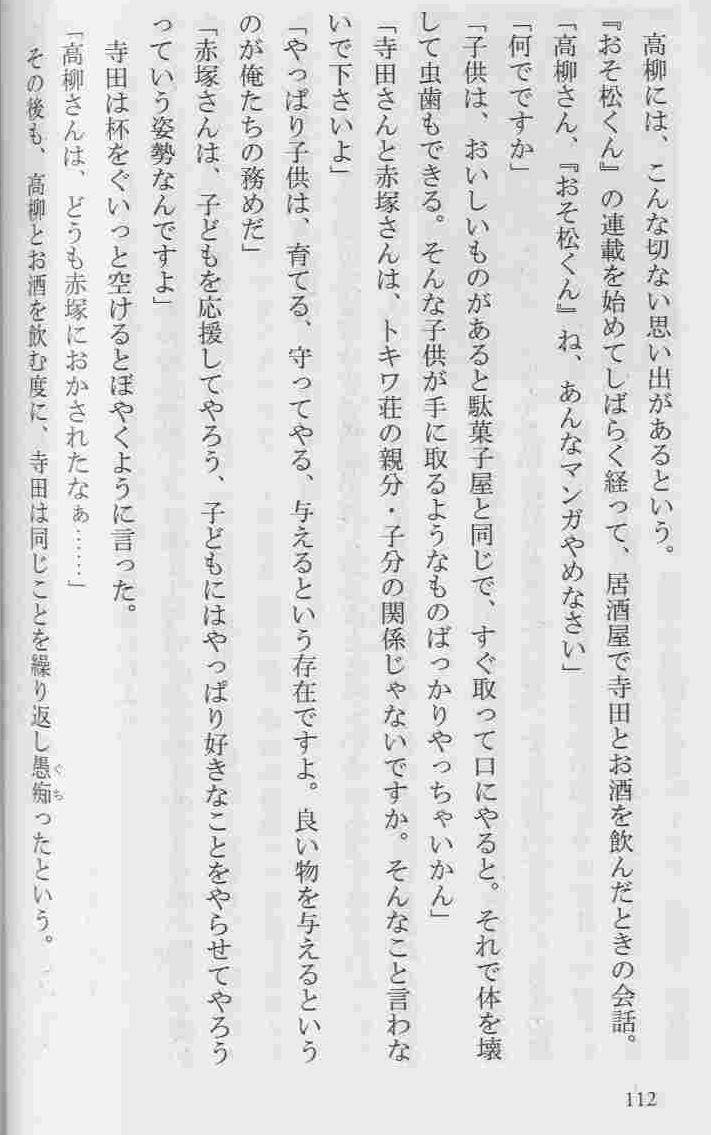 高柳には、こんな切ない思い出があるという。
『おそ松くん』の連載を始めてしばらく経って、居酒屋で寺田とお酒を飲んだときの会話。
「高柳さん、『おそ松くん』ね、あんなマンガやめなさい」
「何でですか」
「子供は、おいしいものがあると駄菓子屋と同じで、すぐ取って口にやると。それで体を壊
して虫歯もできる。そんな子供が手に取るようなものばっかりやっちゃいかん」
「寺田さんと赤塚さんは、トキワ荘の親分・子分の関係じゃないですか。そんなこと言わな
いで下さいよ」
「やっぱり子供は、育てる、守ってやる、与えるという存在ですよ。良い物を与えるという
のが俺たちの務めだ」
「赤塚さんは、子どもを応援してやろう、子どもにはやっぱり好きなことをやらせてやろう
っていう姿勢なんですよ」
寺田は杯をぐいっと空けるとぼやくように言った。
「高柳さんは、どうも赤塚におかされたなぁ……」
その後も、高柳とお酒を飲む度に、寺田は同じことを繰り返し愚痴ったという。
ぐち
112